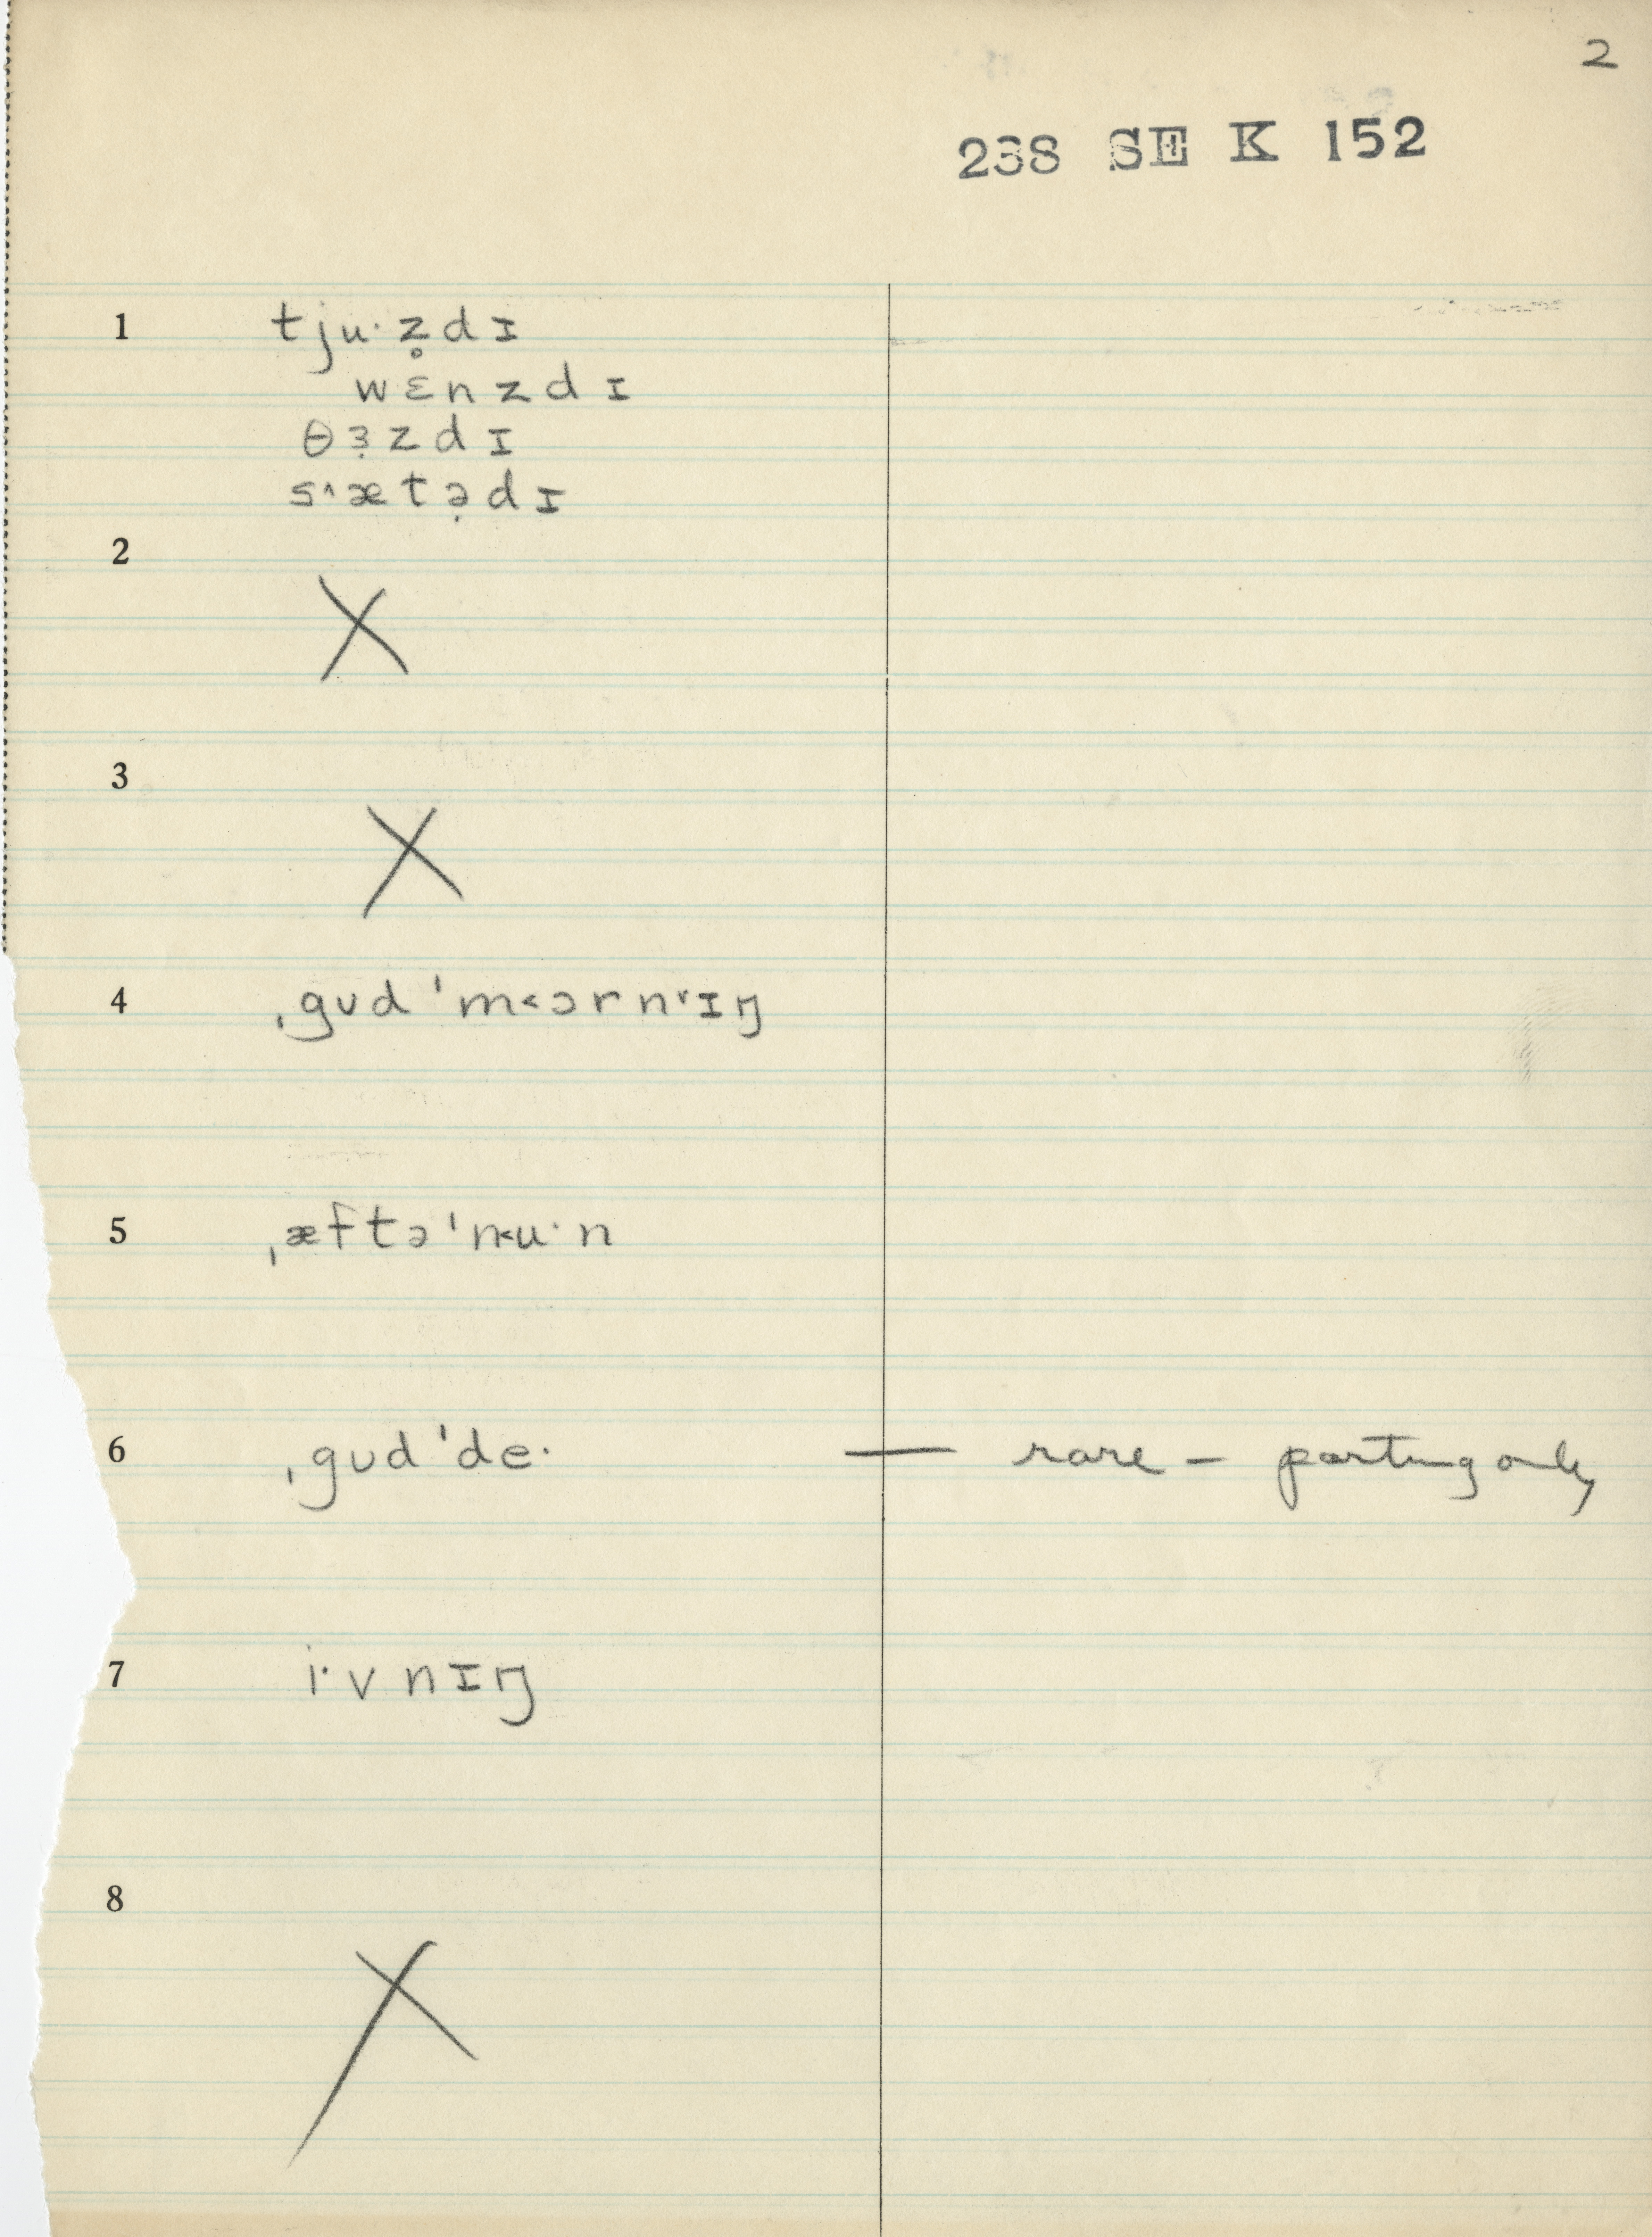 2
238 SE K 152
1 tjuˑz̥dɪ
wɛnzdɪ
θɜ̣zdɪ
s˄ætə̣dɪ
2 X
3 X
4 ˌgʊdˈm˂ɔrn˅ɪŋ
5 ˌæftəˈn˂uˑn
6 ˌgʊdˈdeˑ — rare – parting only
7 iˑvnɪŋ
8 X